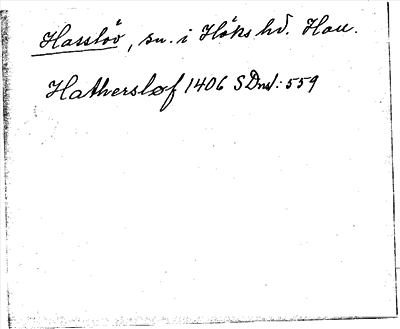 Hasslöv, sn. i Höks hd. Hall.
Hathersløf 1406 SDns1: 559